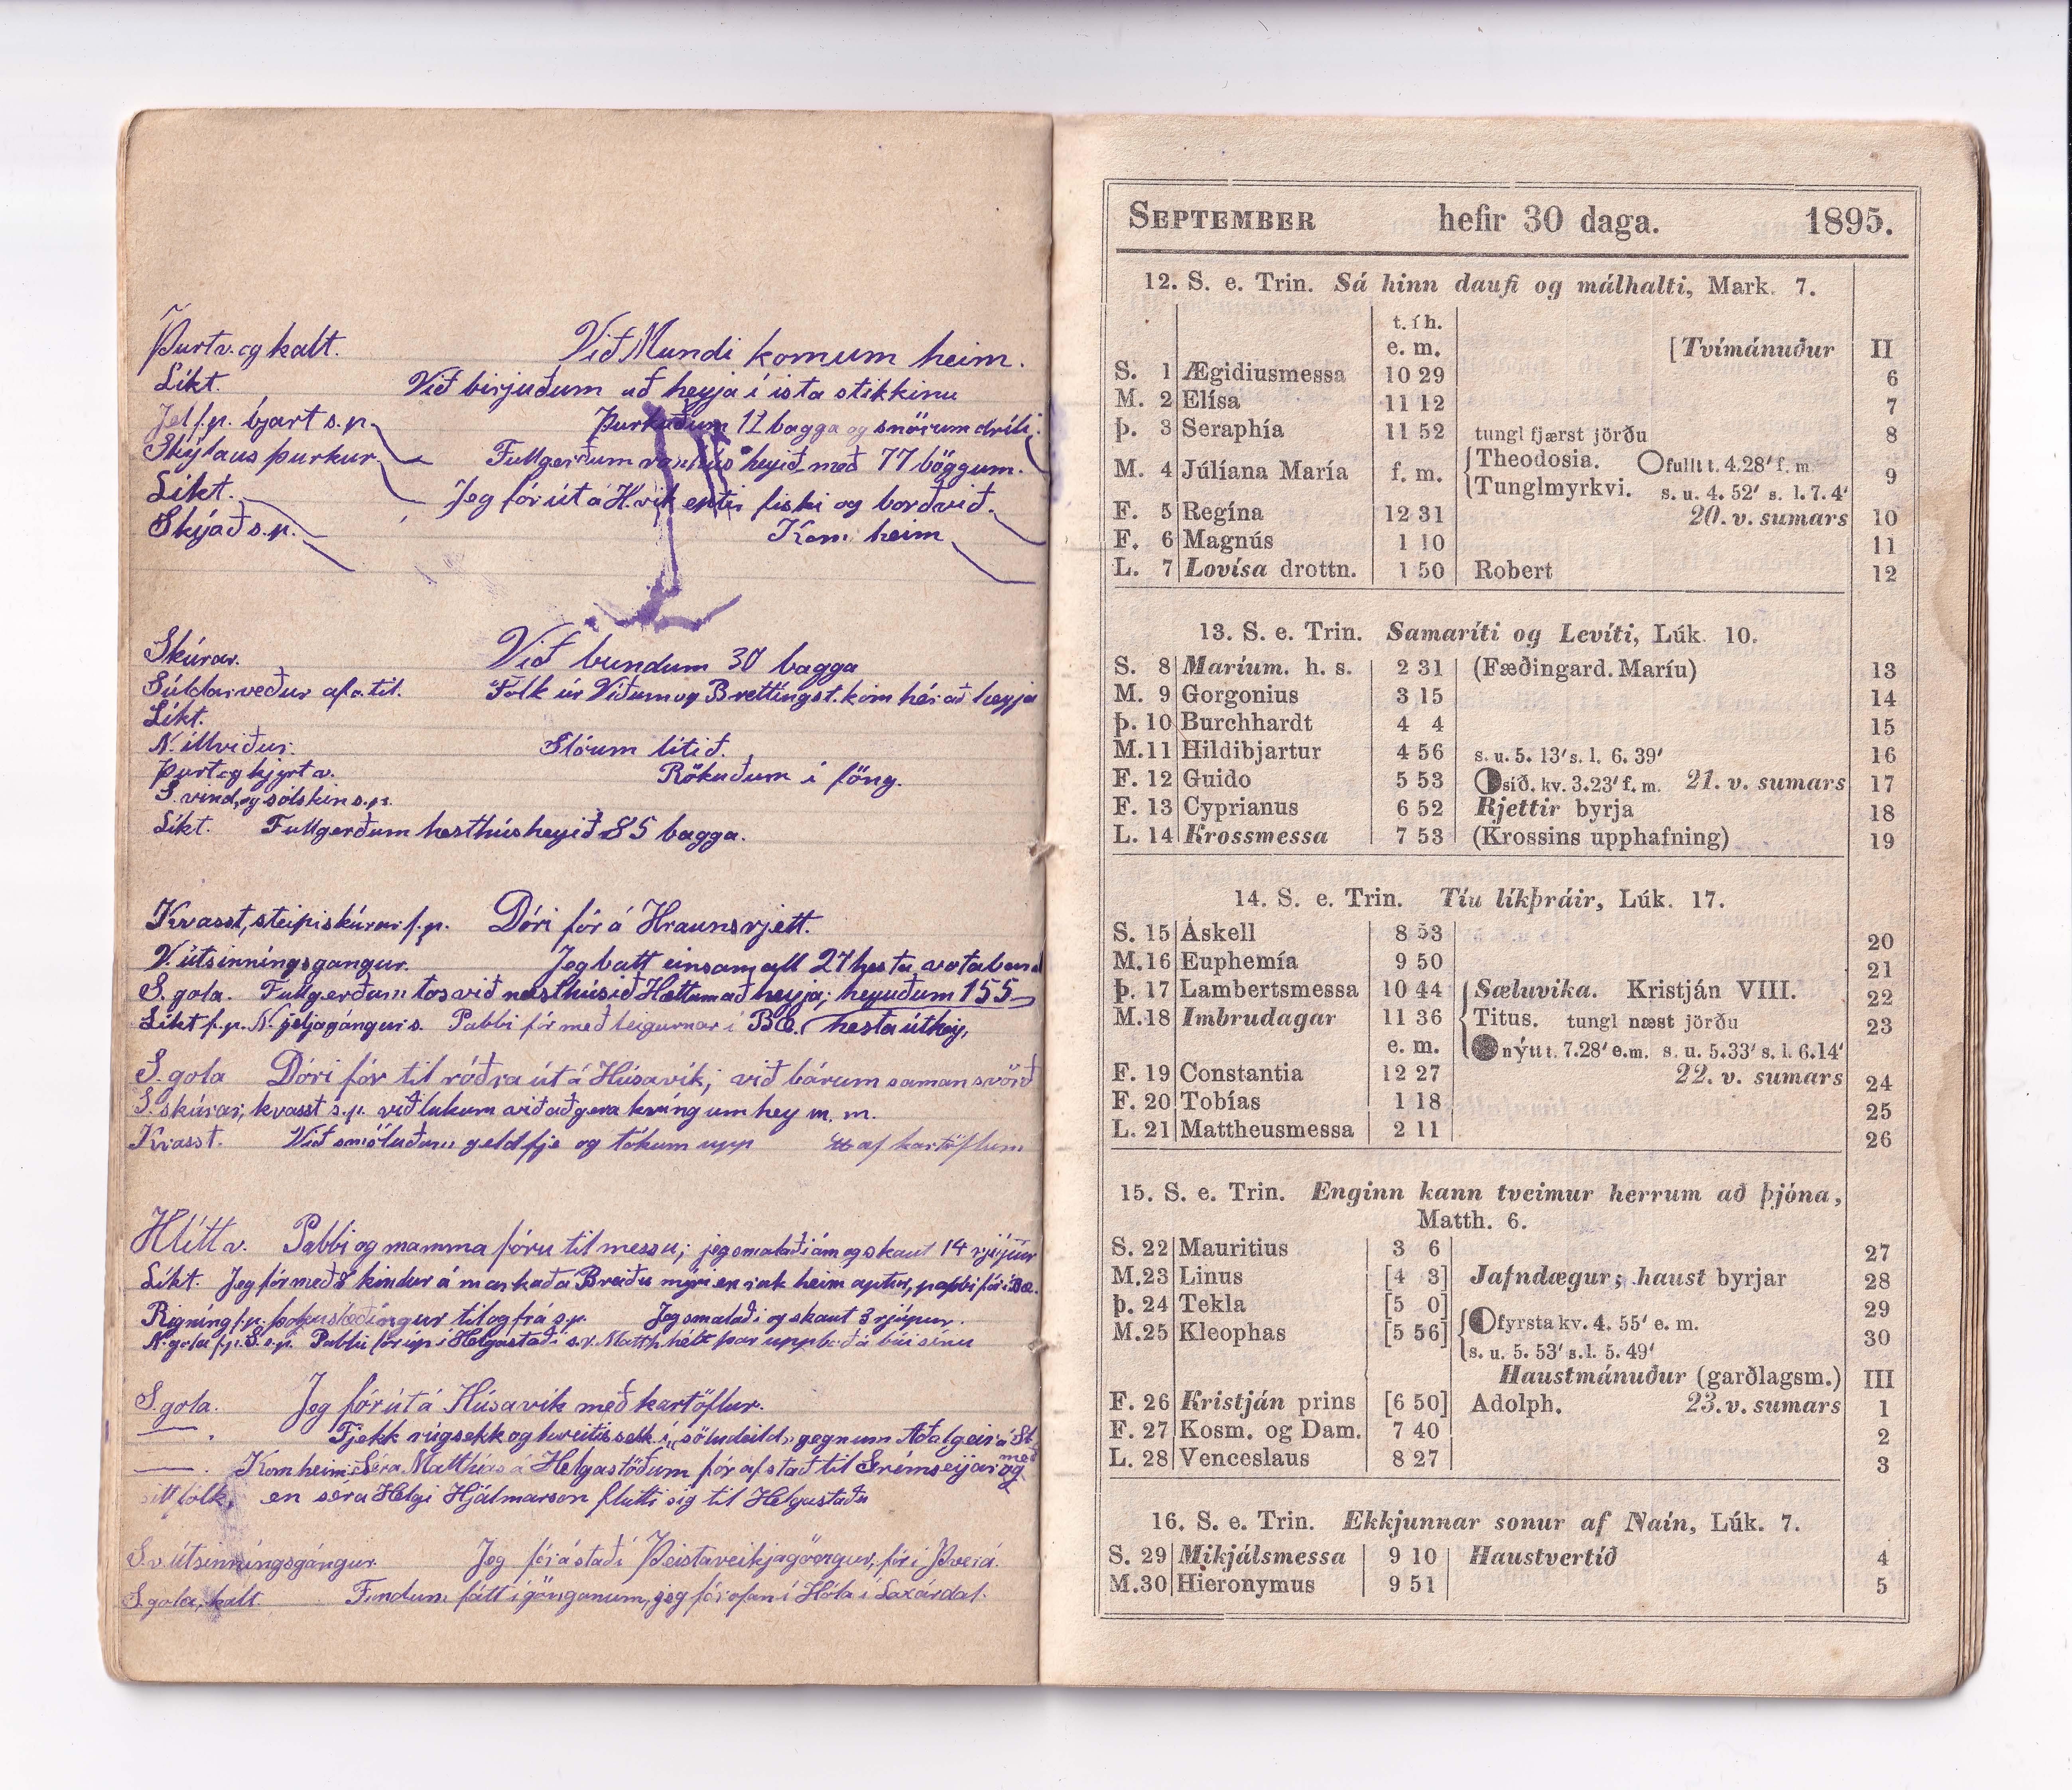 Þurt v. og kalt. Við Mundi komum heim.
Líkt. Við birjuðum að heyja í ista stikkinu
Jel f.p. bjart s.p. Þurkuðum 17 bagga og snörum dríli.
Skýlaus þurkur. Fullgerðum heyið með 77 böggum.
Líkt. Jeg fór út á Hvík eptir fiski og borðvið.
Skýjað s.p. Kom heim
Skúrar. Við bundum 30 bagga
Súldarveður af o. til. Fólk úr Viðum og Brettingst. kom hér að heyja
Líkt.
N. illviður. Slóum lítið.
Þurt og kyrt v. Rökuðum í föng.
S. vind, og sólskin s.p.
Líkt. Fullgerðum hesthúsheyið 85 bagga.
Kvasst, steipiskúrar f.p. Dóri fór á Hraunsrjett.
V. útsinníngsgangur. Jeg batt einsamall 27 hesta votaband
S. gola. Fullgerðum tos við nesthúsið Hættum að heyja; heyuðum 155
Líkt f.p. N. jeljagángur s. Pabbi fór með leigurnar í Bæ. hesta úthey,
S. gola Dóri fór til róðra út á Húsavík; við bárum saman svörð
S. skúrar, kvasst s.p. við lukum við að gera kríng um hey m. m.
Kvasst. Við smöluðum geldfje og tókum upp af kartöflum
Hlítt v. Pabbi og mamma fóru til messu; jeg smalaði ám og skaut 14 rjúpur
Líkt. Jeg fór með 8 kindur á markað á Breiðumýri en rak heim aptur, pabbi fór í Bæ.
Rigníng f.p. þokuslæðingur til og frá s.p. Jeg smalaði og skaut 3 rjúpur.
N. gola f.p. S. s.p. Pabbi fór upp í Helgastaði s.r. Matth. hélt þar uppboð á búi sínu
S. gola. Jeg fór út á Húsavík með kartöflur.
— . Fjekk rúgsekk og hveitissekk í „söludeild„ gegnum Aðalgeir á St.
— . Kom heim Séra Matthias á Helgastöðum fór af stað til Grímseyjar með
sitt fólk, en sera Helgi Hjálmarson flutti sig til Helgastaða
S.v. útsinníngsgángur. Jeg fór á stað í Þeistareikjagöngur, fór í Þverá.
S. gola, kalt. Fundum fátt í göngunum, jeg fór ofan í Hóla í Laxárdal.
SEPTEMBER hefir 30 daga. 1895.
12. S. e. Trin. Sá hinn daufi og málhalti, Mark. 7.
t. í h.
e. m. [Tvímánuður II
S. 1 Ægidiusmessa 10 29 6
M. 2 Elísa 11 12 7
Þ. 3 Seraphía 11 52 tungl fjærst jörðu 8
M. 4 Júlíana María f. m. Theodosia. fullt t. 4.28′ f. m. 9
Tunglmyrkvi. s. u. 4. 52′ s. l. 7. 4′
F. 5 Regína 12 31 20. v. sumars 10
F. 6 Magnús 1 10 11
L. 7 Lovísa drottn. 1 50 Robert 12
13. S. e. Trin. Samaríti og Levíti, Lúk. 10.
S. 8 Maríum. h. s. 2 31 (Fæðingard. Maríu) 13
M. 9 Gorgonius 3 15 14
Þ. 10 Burchhardt 4 4 15
M. 11 Hildibjartur 4 56 s. u. 5. 13′ s. l. 6. 39′ 16
F. 12 Guido 5 53 síð. kv. 3.23′ f. m. 21. v. sumars 17
F. 13 Cyprianus 6 52 Rjettir byrja 18
L. 14 Krossmessa 7 53 (Krossins upphafning) 19
14. S. e. Trin. Tíu líkþráir, Lúk. 17.
S. 15 Áskell 8 53 20
M. 16 Euphemía 9 50 21
Þ. 17 Lambertsmessa 10 44 Sæluvika. Kristján VIII. 22
M. 18 Imbrudagar 11 36 Titus. tungl næst jörðu 23
e. m. nýtt t. 7.28′ e. m. s. u. 5.33′ s. l. 6.14′
F. 19 Constantia 12 27 22. v. sumars 24
F. 20 Tobías 1 18 25
L. 21 Mattheusmessa 2 11 26
15. S. e. Trin. Enginn kann tveimur herrum að þjóna,
Matth. 6.
S. 22 Mauritius 3 6 27
M. 23 Linus [4 3] Jafndægur; haust byrjar 28
Þ. 24 Tekla [5 0] 29
M. 25 Kleophas [5 56] fyrsta kv. 4. 55′ e. m. 30
s. u. 5. 53′ s. l. 5. 49′
Haustmánuður (garðlagsm.) III
F. 26 Kristján prins [6 50] Adolph. 23. v. sumars 1
F. 27 Kosm. og Dam. 7 40 2
L. 28 Venceslaus 8 27 3
16. S. e. Trin. Ekkjunnar sonur af Naín, Lúk. 7.
S. 29 Mikjálsmessa 9 10 Haustvertíð 4
M. 30 Hieronymus 9 51 5